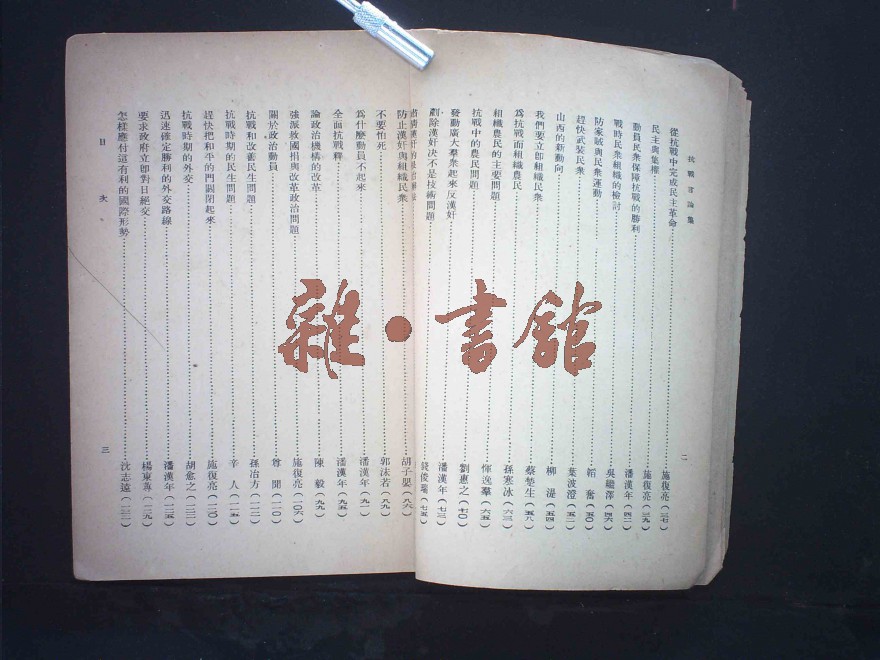 抗戰言論集
二
從抗戰中完成民主革命 施復亮(三七)
民主與集權 施復亮(三九)
動員民衆保障抗戰的勝利 潘漢年(四二)
戰時民衆組織的檢討 吳繼澤(四六)
防家賊與民衆運動 韜奮(五〇)
趕快武裝民衆 葉波澄(五二)
山西的新動向 柳湜(五四)
我們要立卽組織民衆 蔡楚生(五八)
爲抗戰而組織農民 孫寒冰(六三)
組織農民的主要問題 惲逸羣(六五)
抗戰中的農民問題 劉惠之(七〇)
發動廣大羣衆起來反漢奸 潘漢年(七三)
剷除漢奸決不是技術問題 錢俊瑞(七五)
防止漢奸與組織民衆 胡子嬰(八六)
不要怕死 郭沫若(八九)
爲什麼動員不起來 潘漢年(九一)
全面抗戰釋 潘漢年(九五)
論政治機構的改革 陳毅(九九)
強派救國捐與改革政治問題 施復亮(一〇六)
關於政治動員 尊聞(一一〇)
抗戰和改善民生問題 孫冶方(一一二)
抗戰時期的民生問題 辛人(一一五)
趕快把和平的門關閉起來 施復亮(一二〇)
抗戰時期的外交 胡愈之(一二二)
迅速確定勝利的外交路線 潘漢年(一二五)
要求政府立卽對日絕交 楊東蓴(一二九)
怎樣應付這有利的國際形勢 沈志遠(一三一)
目次
三
雜·書館